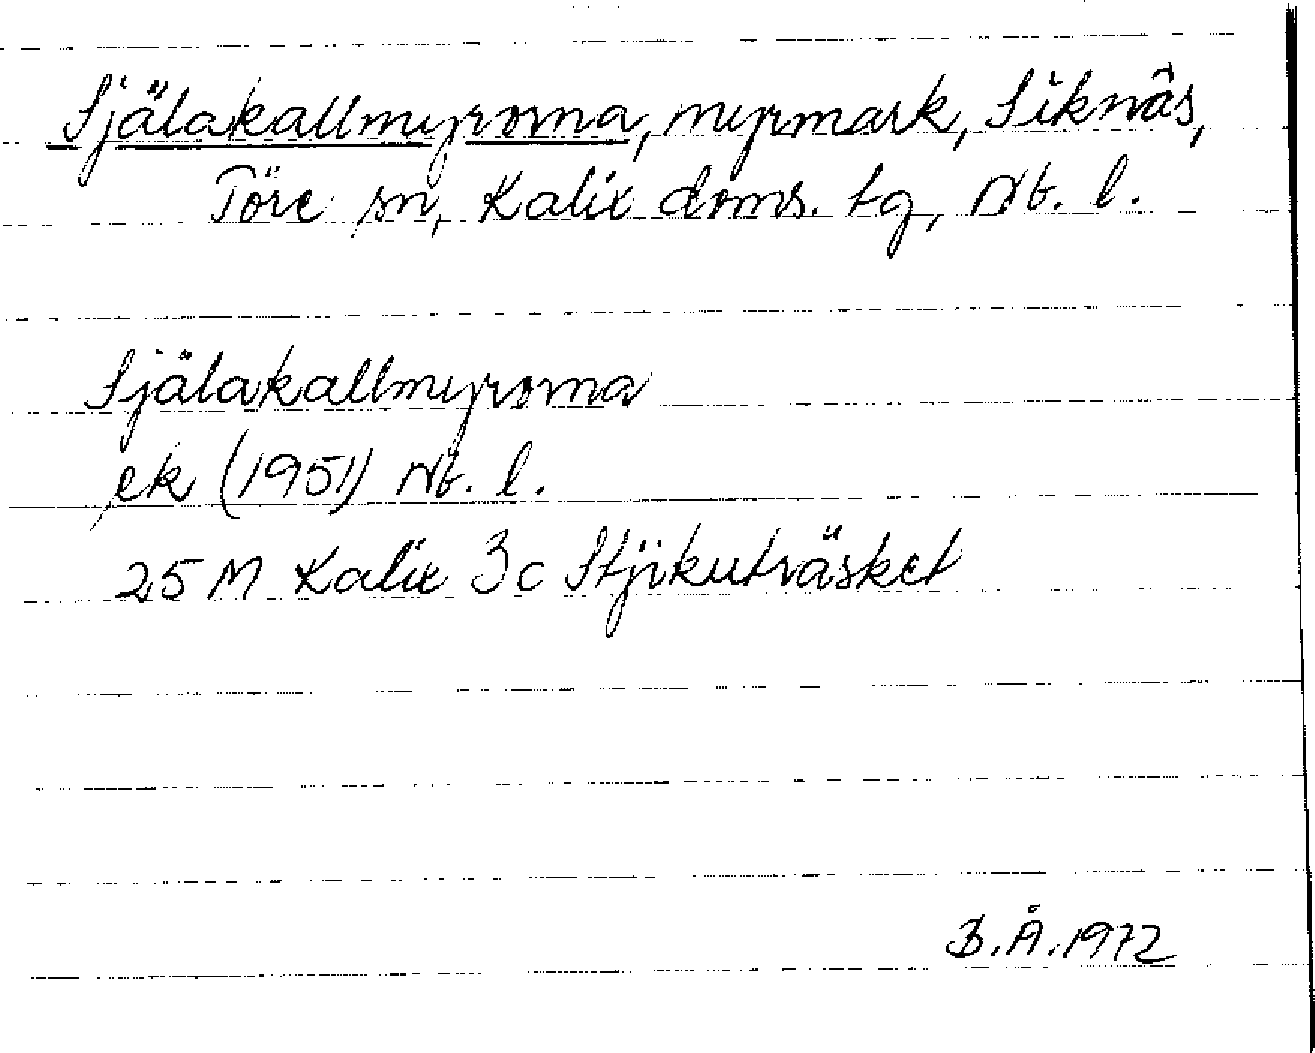 Själakallmyrorna, myrmark, Siknäs,
Töre sn, Kalix doms. tg, Nb. l.
Själakallmyrorna
ek (1951) Nb. l.
25 M Kalix 3c Stjikuträsket
B.Å.1972